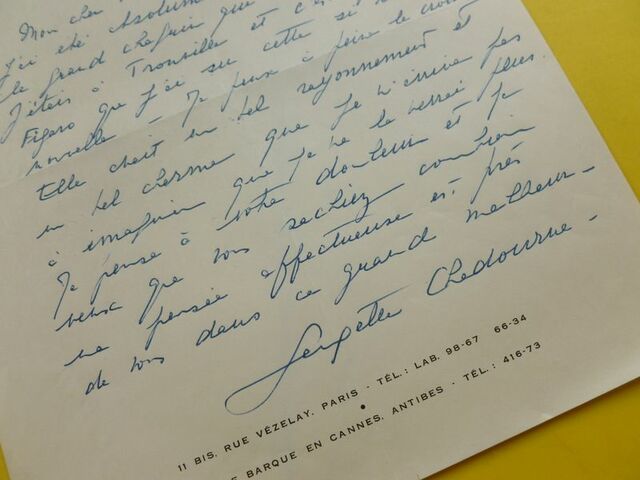 Mon cher
J'ai été absolum
le grand chagrin que
J'étais à Trouville et c'est
Figaro que j'ai su cette si
nouvelle - Je peux à peine le croire
Elle avait un tel rayonnement et
un tel charme que je n'arrive pas
à imaginer que je ne la verrai plus.
Je pense à votre douleur et je
veux que vous sachiez combien
ma pensée affectueuse est près
de vous dans ce grand malheur -
Sergette Chedourne -
11 BIS, RUE VÉZELAY. PARIS - TÉL.: LAB. 98-67 66-34
E BARQUE EN CANNES, ANTIBES - TÉL.: 416-73